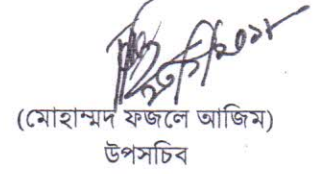 (মোহাম্মদ ফজলে আজিম)
উপসচিব